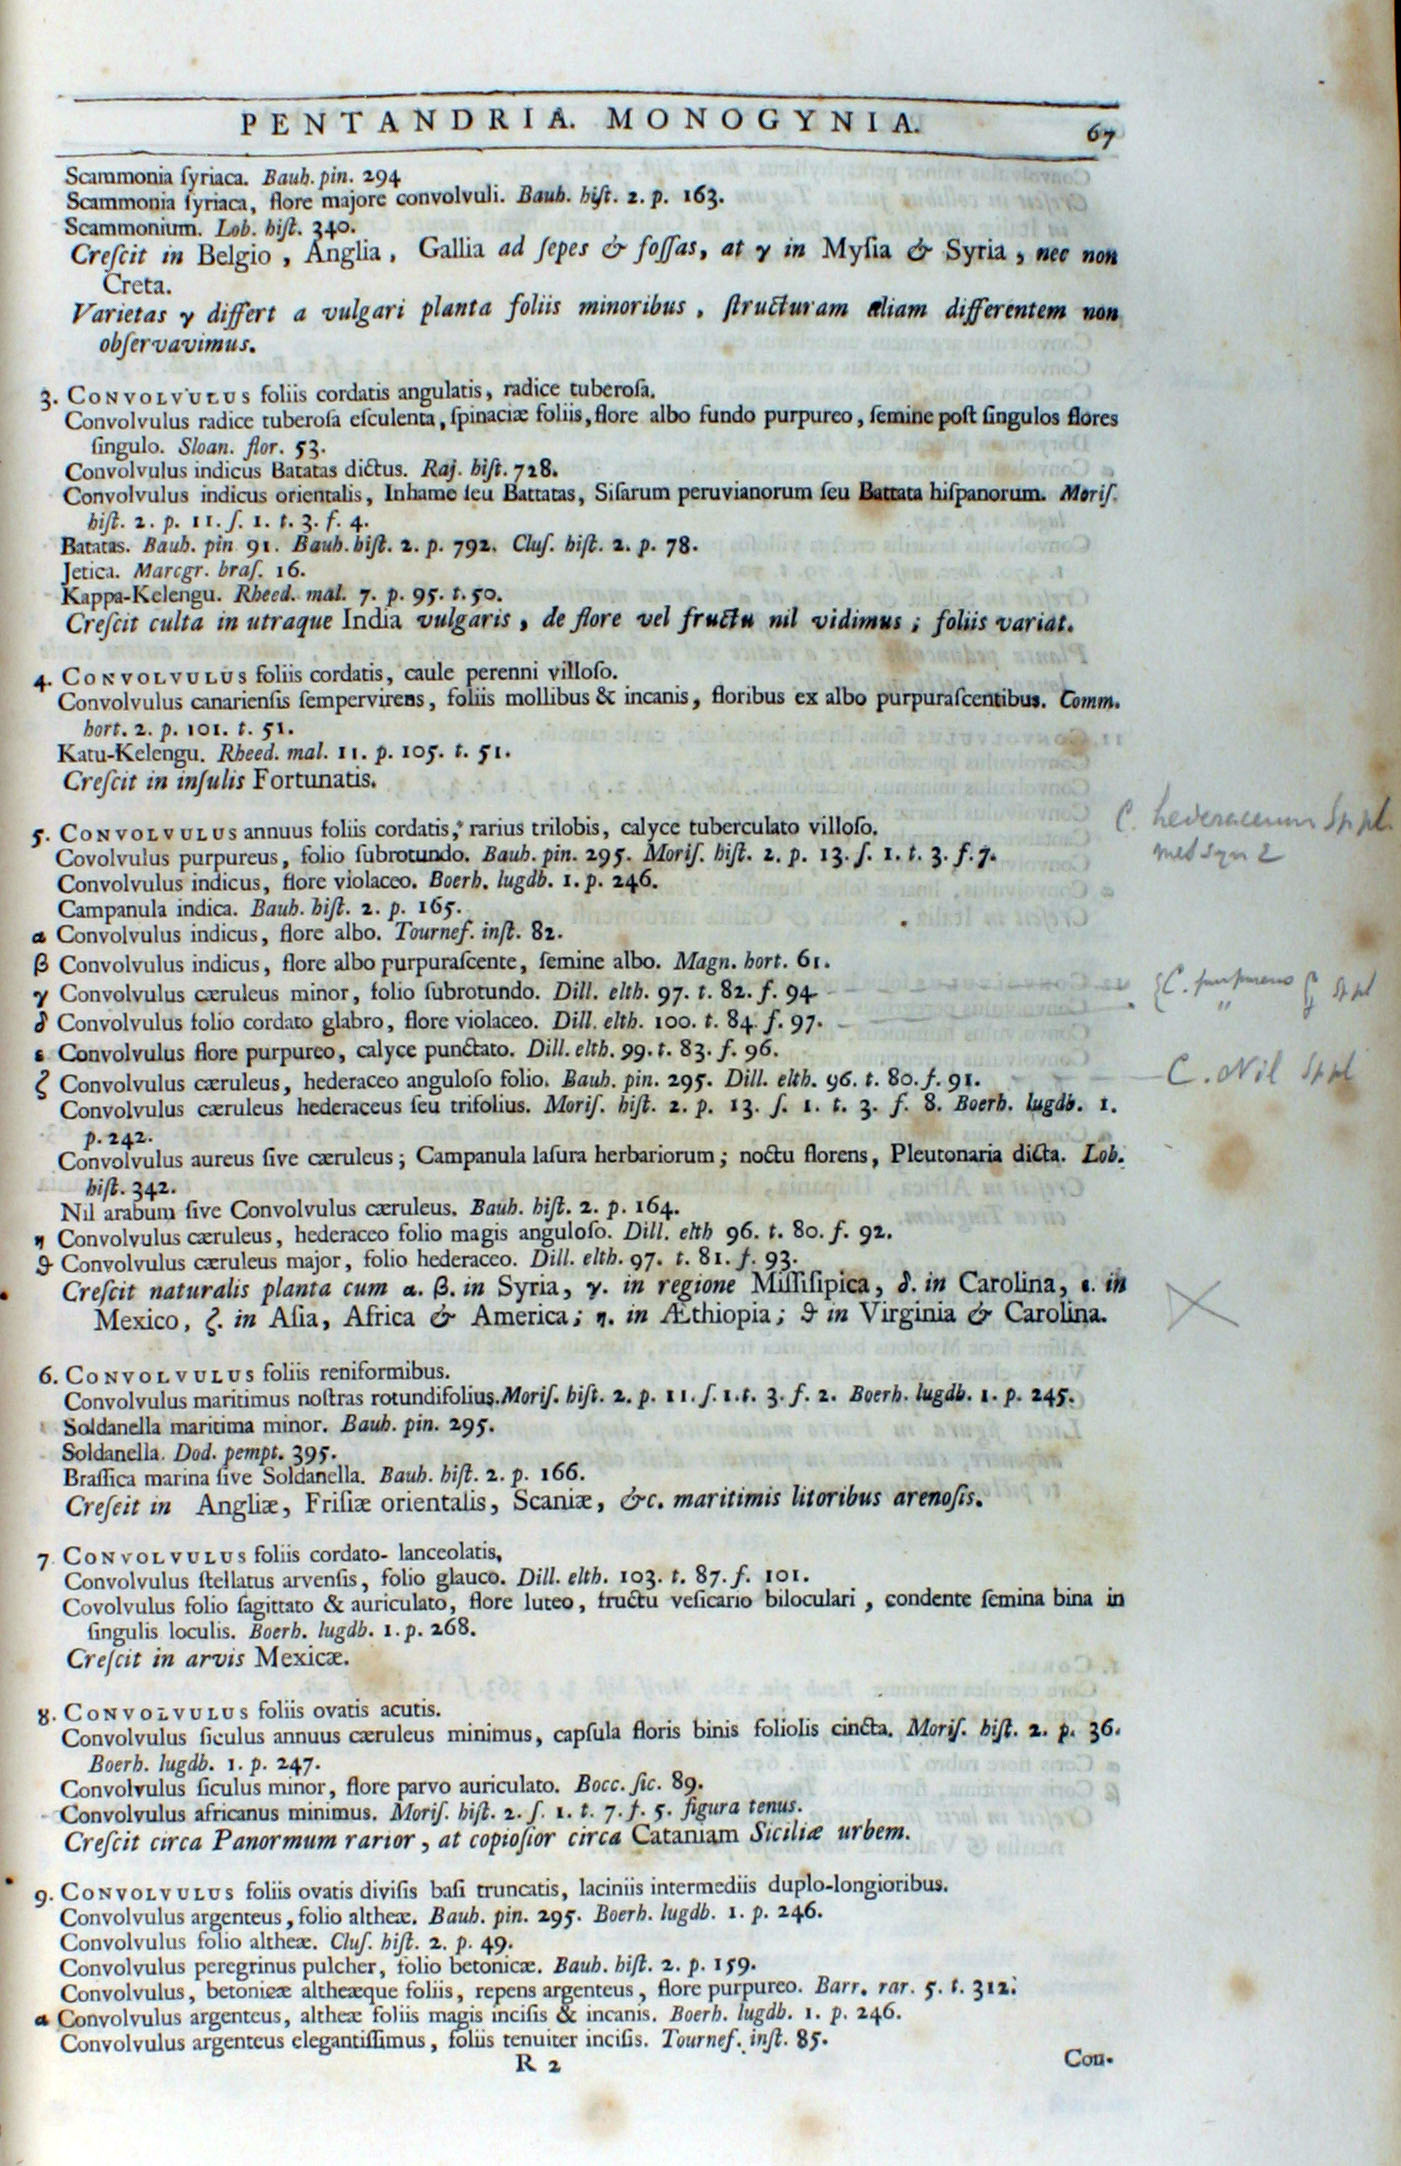 PENTANDRIA. MONOGYNIA. 67
Scammonia ſyriaca. Bauh. pin. 294
Scammonia ſyriaca, flore majore convolvuli. Bauh. hiſt. 2. p. 163.
Scammonium. Lob. hiſt. 340.
Creſcit in Belgio, Anglia, Gallia ad ſepes & foſſas, at γ in Myſia & Syria, nec non
Creta.
Varietas γ differt a vulgari planta foliis minoribus, ſtructuram aliam differentem non
obſervavimus.
3. CONVOLVULUS foliis cordatis angulatis, radice tuberoſa.
Convolvulus radice tuberoſa eſculenta, ſpinaciæ foliis, flore albo fundo purpureo, ſemine poſt ſingulos flores
ſingulo. Sloan. flor. 53.
Convolvulus indicus Batatas dictus. Raj. hiſt. 728.
Convolvulus indicus orientalis, Inhame ſeu Battatas, Siſarum peruvianorum ſeu Battata hiſpanorum. Moriſ.
hiſt. 2. p. 11. ſ. 1. t. 3. f. 4.
Batatas. Bauh. pin 91. Bauh. hiſt. 2. p. 792. Cluſ. hiſt. 2. p. 78.
Jetica. Marcgr. braſ. 16.
Kappa-Kelengu. Rheed. mal. 7. p. 95. t. 50.
Creſcit culta in utraque India vulgaris, de flore vel fructu nil vidimus; foliis variat.
4. CONVOLVULUS foliis cordatis, caule perenni villoſo.
Convolvulus canarienſis ſempervirens, foliis mollibus & incanis, floribus ex albo purpuraſcentibus. Comm.
hort. 2. p. 101. t. 51.
Katu-Kelengu. Rheed. mal. 11. p. 105. t. 51.
Creſcit in inſulis Fortunatis.
C. hederaceum Sp pl.
5. CONVOLVULUS annuus foliis cordatis, rarius trilobis, calyce tuberculato villoſo.
med syn 2
Covolvulus purpureus, folio ſubrotundo. Bauh. pin. 295. Moriſ. hiſt. 2. p. 13. ſ. 1. t. 3. f. 7.
Convolvulus indicus, flore violaceo. Boerh. lugdb. 1. p. 246.
Campanula indica. Bauh. hiſt. 2. p. 165.
α Convolvulus indicus, flore albo. Tournef. inſt. 82.
β Convolvulus indicus, flore albo purpuraſcente, ſemine albo. Magn. hort. 61.
γ Convolvulus cæruleus minor, folio ſubrotundo. Dill. elth. 97. t. 82. f. 94 C. purpureus Sp pl
δ Convolvulus folio cordato glabro, flore violaceo. Dill. elth. 100. t. 84. f. 97. "
ε Convolvulus flore purpureo, calyce punctato. Dill. elth. 99. t. 83. f. 96.
ζ Convolvulus cæruleus, hederaceo anguloſo folio. Bauh. pin. 295. Dill. elth. 96. t. 80. f. 91. C. Nil Sp pl
Convolvulus cæruleus hederaceus ſeu trifolius. Moriſ. hiſt. 2. p. 13. ſ. 1. t. 3. f. 8. Boerh. lugdb. 1.
p. 242.
Convolvulus aureus ſive cæruleus; Campanula laſura herbariorum; noctu florens, Pleutonaria dicta. Lob.
hiſt. 342.
Nil arabum ſive Convolvulus cæruleus. Bauh. hiſt. 2. p. 164.
η Convolvulus cæruleus, hederaceo folio magis anguloſo. Dill. elth 96. t. 80. f. 92.
ϑ Convolvulus cæruleus major, folio hederaceo. Dill. elth. 97. t. 81. f. 93.
Creſcit naturalis planta cum α. β. in Syria, γ. in regione Miſſiſipica, δ. in Carolina, ε. in
Mexico, ζ. in Aſia, Africa & America; η. in Æthiopia; ϑ in Virginia & Carolina.
6. CONVOLVULUS foliis reniformibus.
Convolvulus maritimus noſtras rotundifolius. Moriſ. hiſt. 2. p. 11. ſ. 1. t. 3. f. 2. Boerh. lugdb. 1. p. 245.
Soldanella maritima minor. Bauh. pin. 295.
Soldanella. Dod. pempt. 395.
Braſſica marina ſive Soldanella. Bauh. hiſt. 2. p. 166.
Creſcit in Angliæ, Friſiæ orientalis, Scaniæ, &c. maritimis litoribus arenoſis.
7 CONVOLVULUS foliis cordato- lanceolatis,
Convolvulus ſtellatus arvenſis, folio glauco. Dill. elth. 103. t. 87. f. 101.
Covolvulus folio ſagittato & auriculato, flore luteo, fructu veſicario biloculari, condente ſemina bina in
ſingulis loculis. Boerh. lugdb. 1. p. 268.
Creſcit in arvis Mexicæ.
8. CONVOLVULUS foliis ovatis acutis.
Convolvulus ſiculus annuus cæruleus minimus, capſula floris binis foliolis cincta. Moriſ. hiſt. 2. p. 36.
Boerh. lugdb. 1. p. 247.
Convolvulus ſiculus minor, flore parvo auriculato. Bocc. ſic. 89.
Convolvulus africanus minimus. Moriſ. hiſt. 2. ſ. 1. t. 7. f. 5. figura tenus.
Creſcit circa Panormum rarior, at copioſior circa Cataniam Siciliæ urbem.
9. CONVOLVULUS foliis ovatis diviſis baſi truncatis, laciniis intermediis duplo-longioribus.
Convolvulus argenteus, folio altheæ. Bauh. pin. 295. Boerh. lugdb. 1. p. 246.
Convolvulus folio altheæ. Cluſ. hiſt. 2. p. 49.
Convolvulus peregrinus pulcher, folio betonicæ. Bauh. hiſt. 2. p. 159.
Convolvulus, betonicæ altheæque foliis, repens argenteus, flore purpureo. Barr. rar. 5. t. 312.
α Convolvulus argenteus, altheæ foliis magis inciſis & incanis. Boerh. lugdb. 1. p. 246.
Convolvulus argenteus elegantiſſimus, foliis tenuiter inciſis. Tournef. inſt. 85.
R 2 Con-